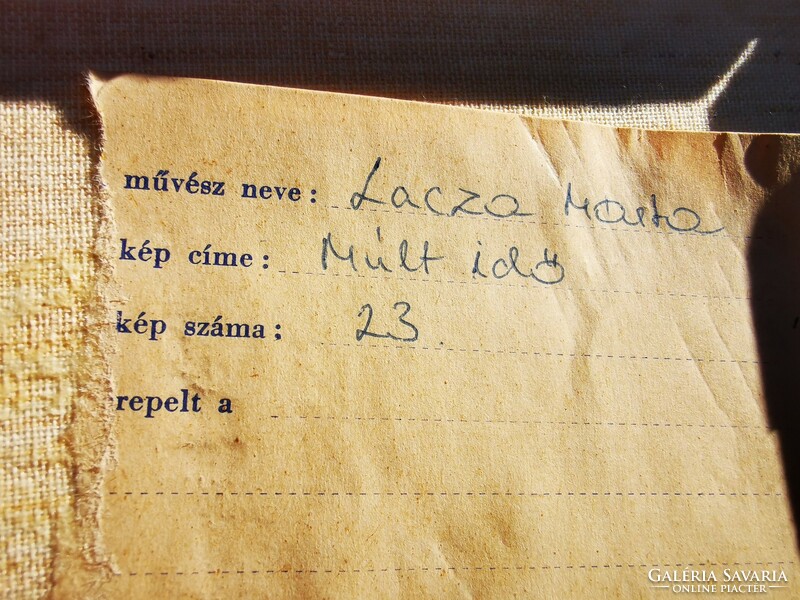 művész neve: Lacza Marta
kép címe: Múlt idő
kép száma; 23
repelt a
GALÉRIA SAVARIA
ONLINE PIACTÉR